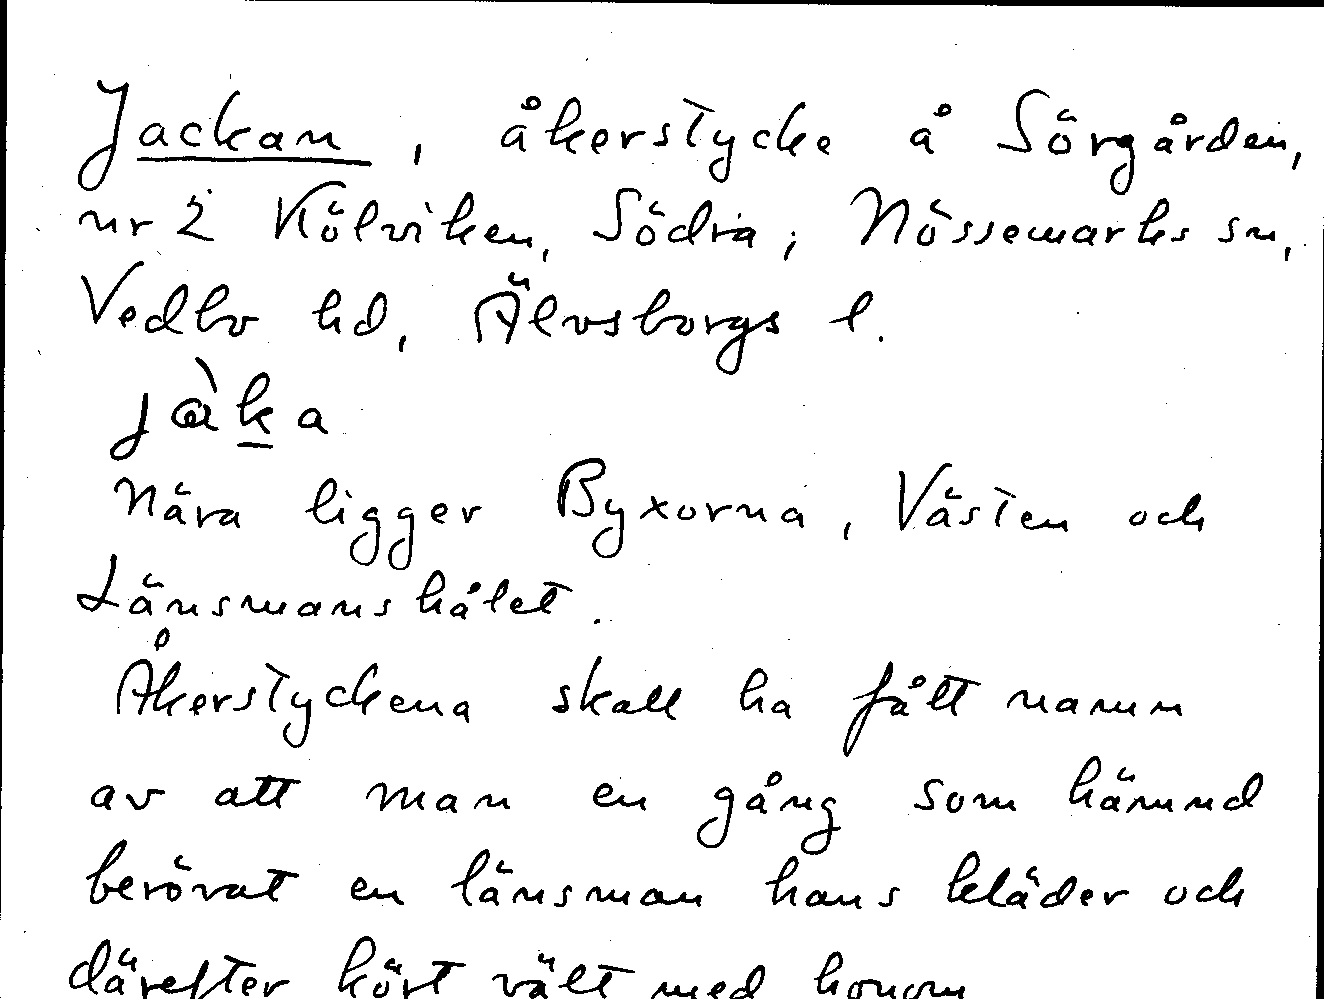 Jackan, åkerstycke å Sörgården,
nr 2 Kölviken, Södra, Nössemarks sn,
Vedbo hd, Älvsborgs l.
jàka
Nära ligger Byxorna, Västen och
Länsmanshålet.
Åkerstyckena skall ha fått namn
av att man en gång som hämnd
berövat en länsman hans kläder och
därefter kört vält med honom